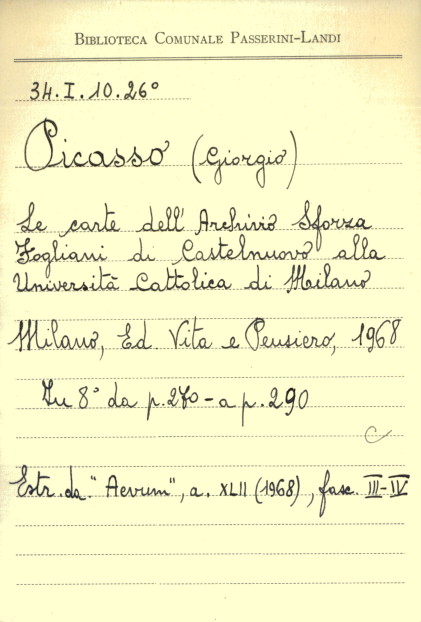 BIBLIOTECA COMUNALE PASSERINI-LANDI
34.I.10.26°
Picasso (Giorgio)
Le carte dell'Archivio Sforza
Fogliani di Castelnuovo alla
Università Cattolica di Milano
Milano, Ed. Vita e Pensiero, 1968
In 8° da p. 270 - a p. 290
C
Estr. da "Aevum", a. XLII (1968), fasc. III-IV